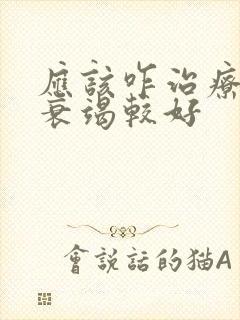 應該咋治療
衰竭較好
會說話的猫A